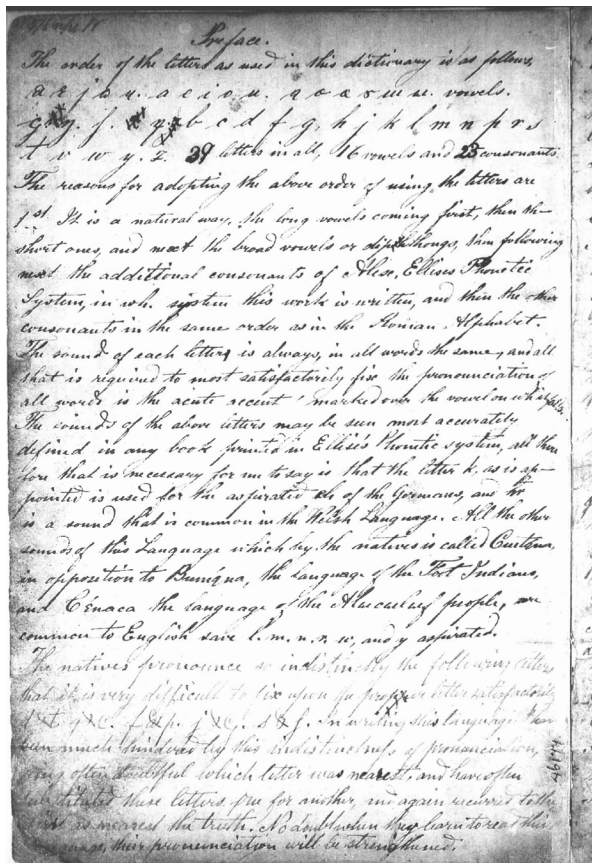 Preface.
The order of the letters as used in this dictionary is as follows,
t v w y. z. 39 letters in all, 16 vowels and 23 consonants.
The reasons for adopting the above order of using the letters are
1st. It is a natural way, the long vowels coming first, then the
short ones, and next the broad vowels or dipthongs, then following
next the additional consonants of Alexr. Ellises Phonetic
System, in wh. system this work is written, and then the other
consonants in the same order as in the Roman Alphabet.
The sound of each letter is always, in all words the same, and all
that is required to most satisfactorily fix the pronounciation of
all words is the acute accent ' marked over the vowel on which it falls.
The sounds of the above letters may be seen most accurately
defined in any book printed in Ellises Phonetic system, all there
fore that is necessary for me to say is that the letter x. as is ap-
pointed is used for the aspirated ch of the Germans, and hr
is a sound that is common in the Welsh Language. All the other
sounds of this Language which by the natives is called
in opposition to the Language of the Foot Indians,
and the language of the people, are
common to English save l. m. n. r. w, and y aspirated.
The natives pronounce so indistinctly the following letters
that it is very difficult to fix upon the proper letter satisfactorily
In writing this language I have
been much hindered by this indistinctness of pronunciation,
being often doubtful which letter was nearest, and have often
substituted these letters one for another, and again recurred to the
as nearest the truth. No doubt when they learn to read this
their pronunciation will be strengthened.
46174